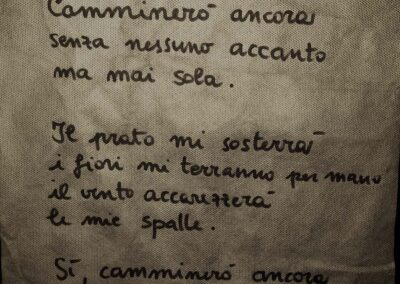 Camminerò ancora
senza nessuno accanto
ma mai sola.
Il prato mi sosterrà
i fiori mi terranno per mano
il vento accarezzerà
le mie spalle.
Sì, camminerò ancora